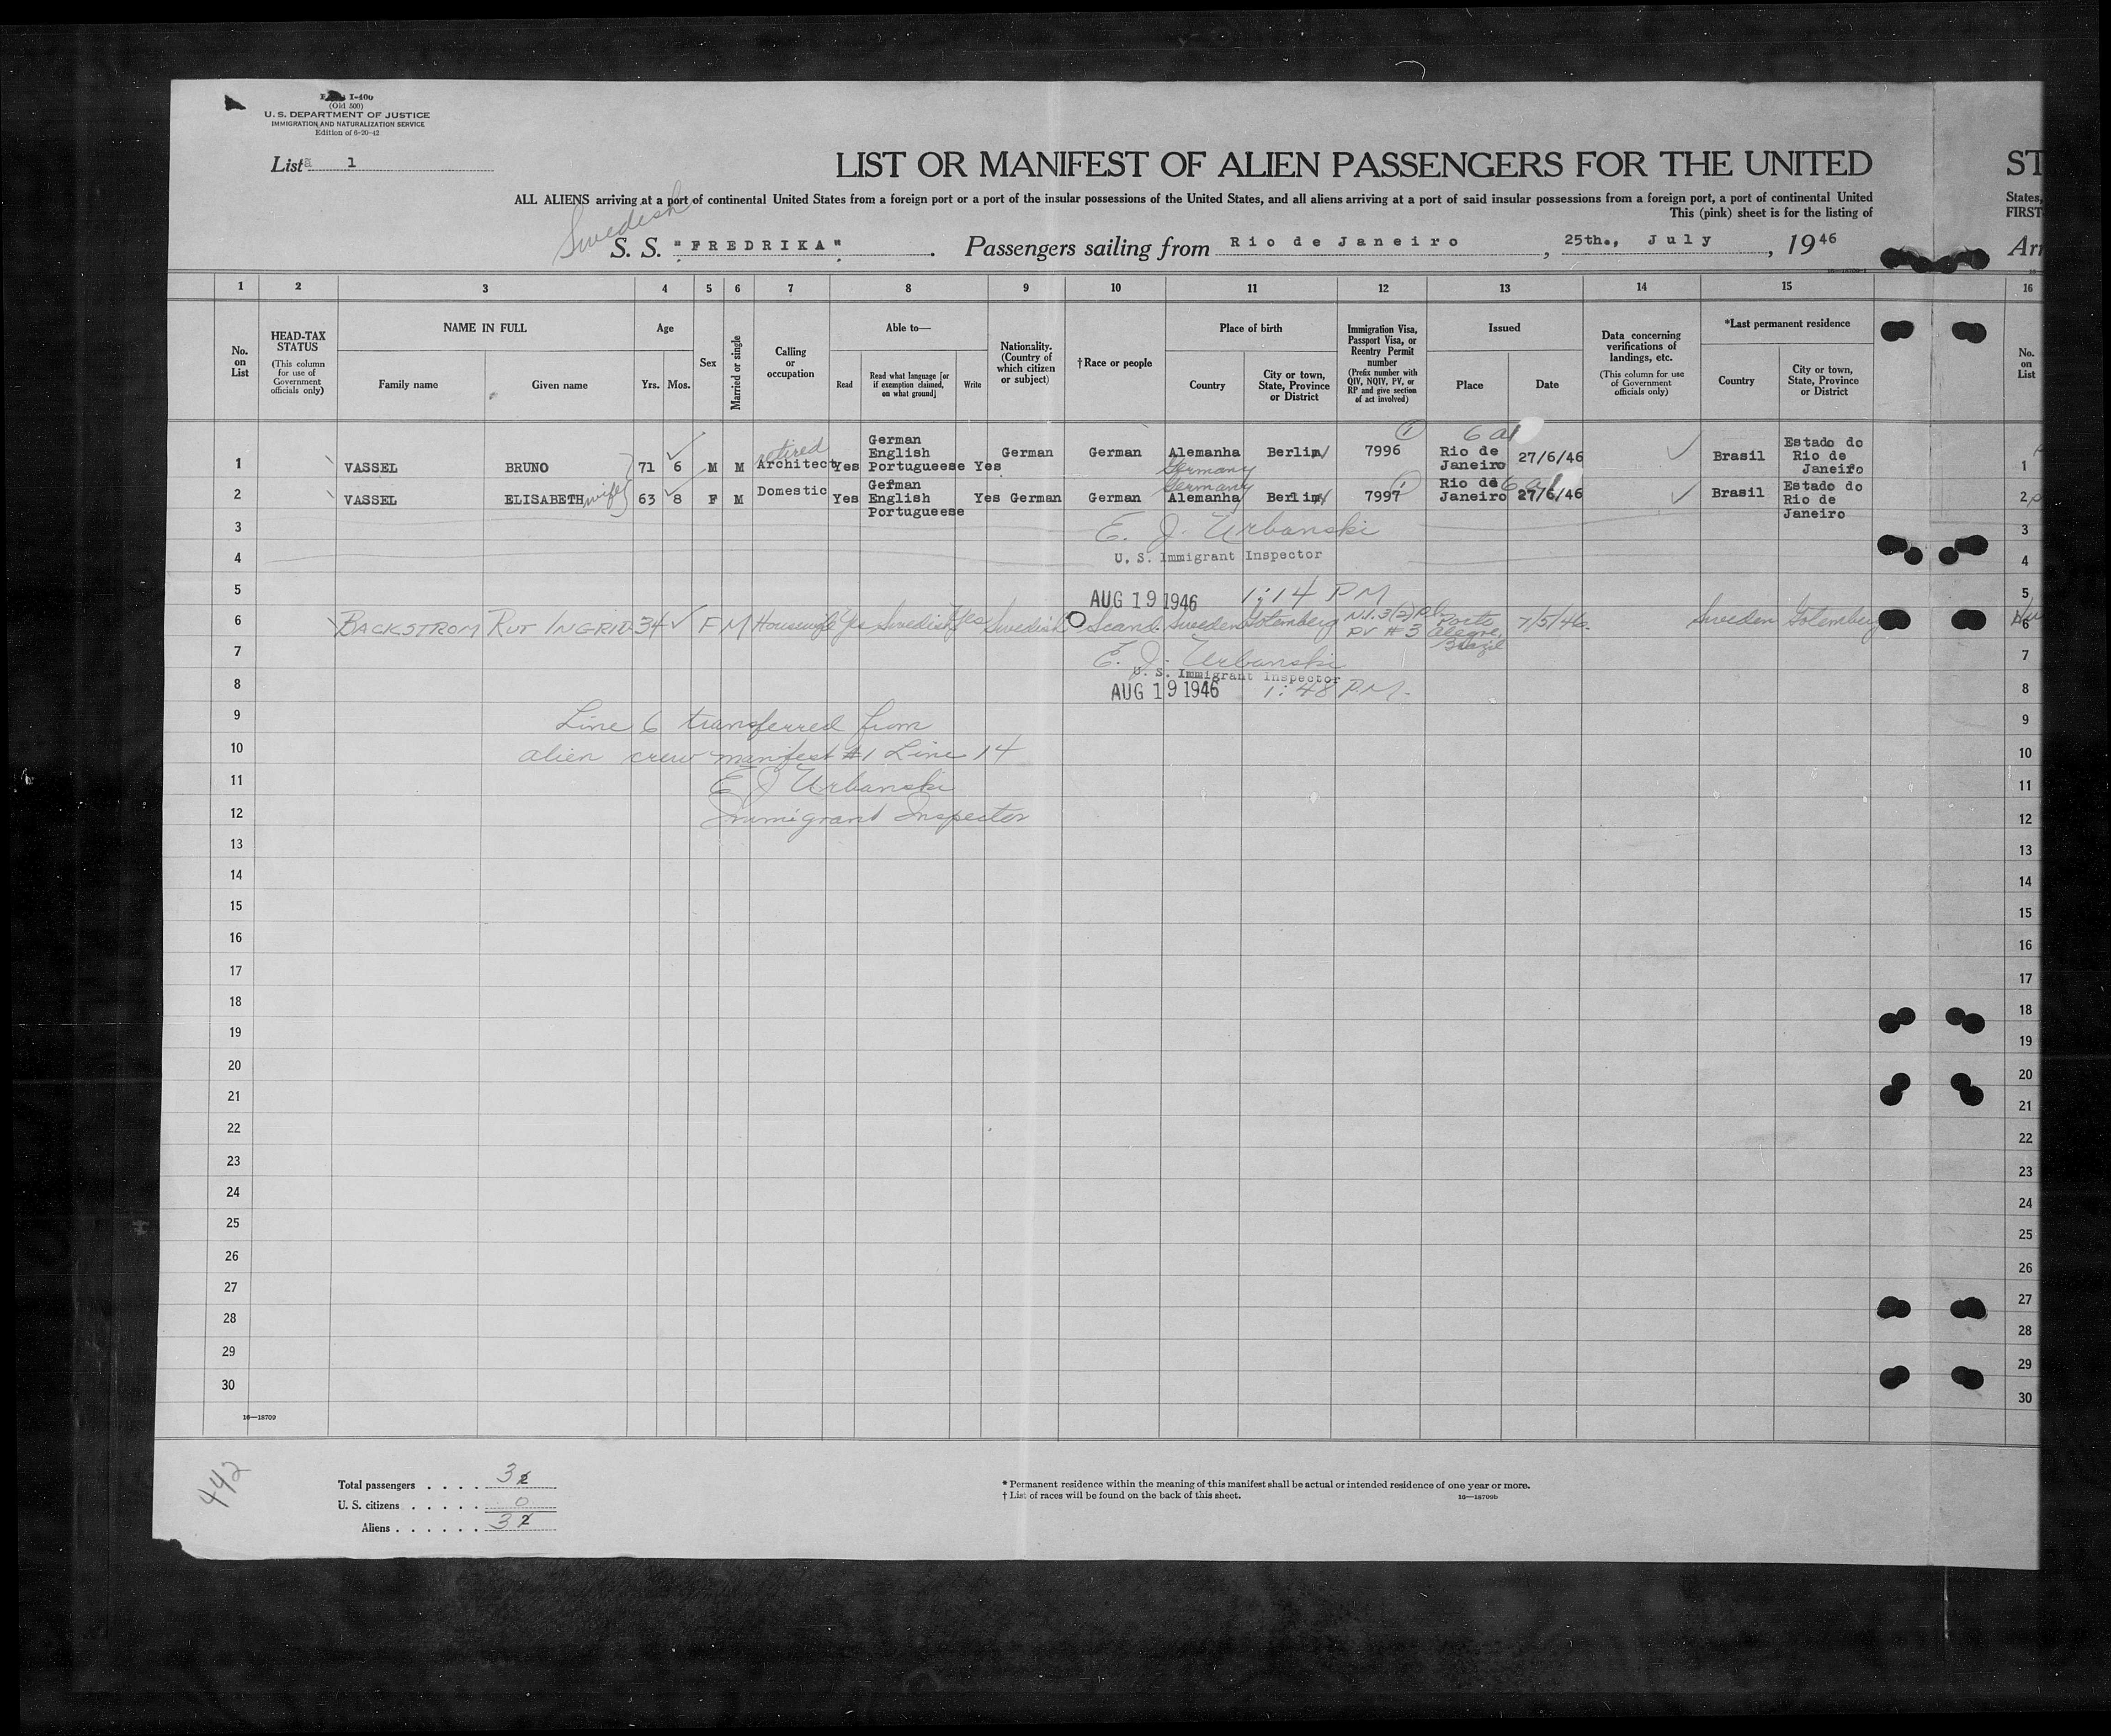 Form I-400
(Old 500)
U. S. DEPARTMENT OF JUSTICE
IMMIGRATION AND NATURALIZATION SERVICE
Edition of 6-20-42
List 1
LIST OR MANIFEST OF ALIEN PASSENGERS FOR THE UNITED ST
ALL ALIENS arriving at a port of continental United States from a foreign port or a port of the insular possessions of the United States, and all aliens arriving at a port of said insular possessions from a foreign port, a port of continental United States,
This (pink) sheet is for the listing of FIRST
Swedish
S. S. "FREDRIKA". Passengers sailing from Rio de Janeiro, 25th., July, 1946 Arr
1 2 3 4 5 6 7 8 9 10 11 12 13 14 15 16
No. on List
HEAD-TAX STATUS
(This column for use of Government officials only)
NAME IN FULL
Family name
Given name
Age
Yrs. Mos.
Sex
Married or single
Calling or occupation
Able to—
Read
Read what language [or if exemption claimed, on what ground]
Write
Nationality. (Country of which citizen or subject)
†Race or people
Place of birth
Country
City or town, State, Province or District
Immigration Visa, Passport Visa, or Reentry Permit number
(Prefix number with QIV, NQIV, PV, or RP and give section of act involved)
Issued
Place
Date
Data concerning verifications of landings, etc.
(This column for use of Government officials only)
*Last permanent residence
Country
City or town, State, Province or District
No. on List
1 VASSEL BRUNO 71 6 M M retired Architect Yes German English Portugueese Yes German German Alemanha Germany Berlin 7996 Rio de Janeiro 27/6/46 Brasil Estado do Rio de Janeiro 1
2 VASSEL ELISABETH wife 63 8 F M Domestic Yes German English Portugueese Yes German German Germany Alemanha Berlin 7997 Rio de Janeiro 27/6/46 Brasil Estado do Rio de Janeiro 2
3 E. J. Urbanski 3
4 U. S. Immigrant Inspector 4
5 AUG 19 1946 1:14 PM 5
6 BACKSTROM RUT INGRID 34 F M Housewife Yes Swedish Yes Swedish Scand. Sweden Gotemberg N.I. 3(2) PV # 3 Porto Alegre, Brazil 7/5/46 Sweden Gotemberg 6
7 E. J. Urbanski 7
U. S. Immigrant Inspector
8 AUG 19 1946 1:48 P.M. 8
9 Line 6 transferred from 9
10 alien crew manifest #1 Line 14 10
11 E J Urbanski 11
12 Immigrant Inspector 12
13 13
14 14
15 15
16 16
17 17
18 18
19 19
20 20
21 21
22 22
23 23
24 24
25 25
26 26
27 27
28 28
29 29
30 30
16—18709
442
Total passengers . . . . 3 2
U. S. citizens . . . . . 0
Aliens . . . . . . 3 2
* Permanent residence within the meaning of this manifest shall be actual or intended residence of one year or more.
† List of races will be found on the back of this sheet.
16—18709b